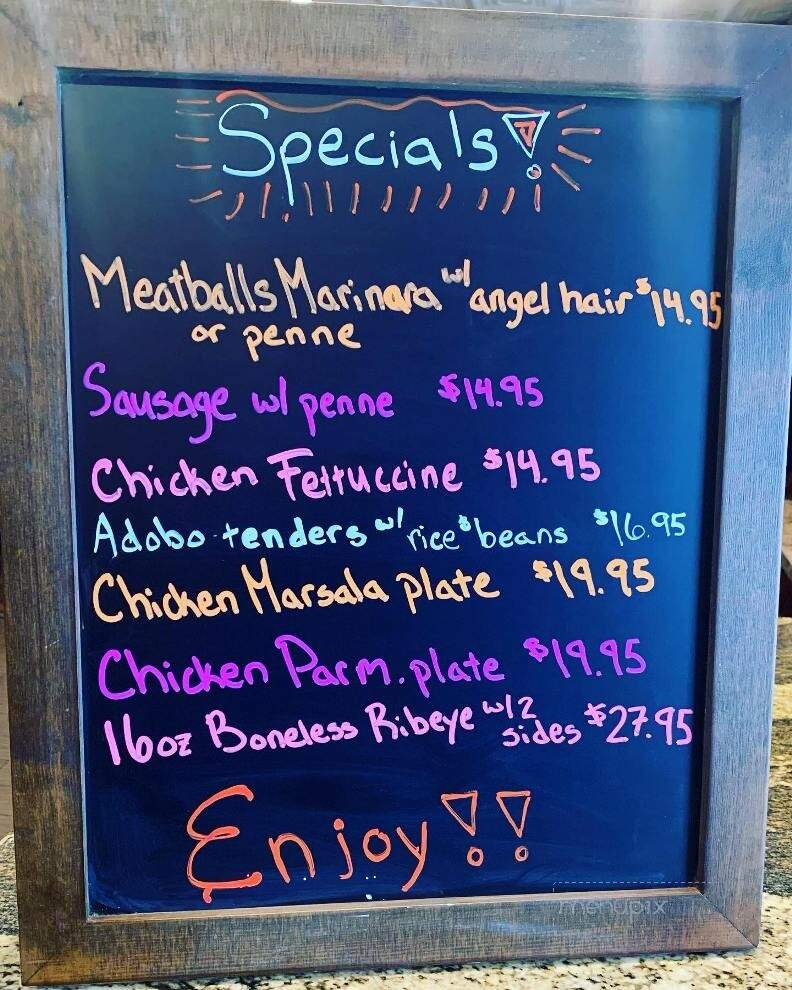 Specials!
Meatballs Marinara w/ angel hair $14.95
or penne
Sausage w/ penne $14.95
Chicken Fettuccine $14.95
Adobo tenders w/ rice & beans $16.95
Chicken Marsala plate $19.95
Chicken Parm. plate $19.95
16oz Boneless Ribeye w/2 sides $27.95
Enjoy!!
menupix